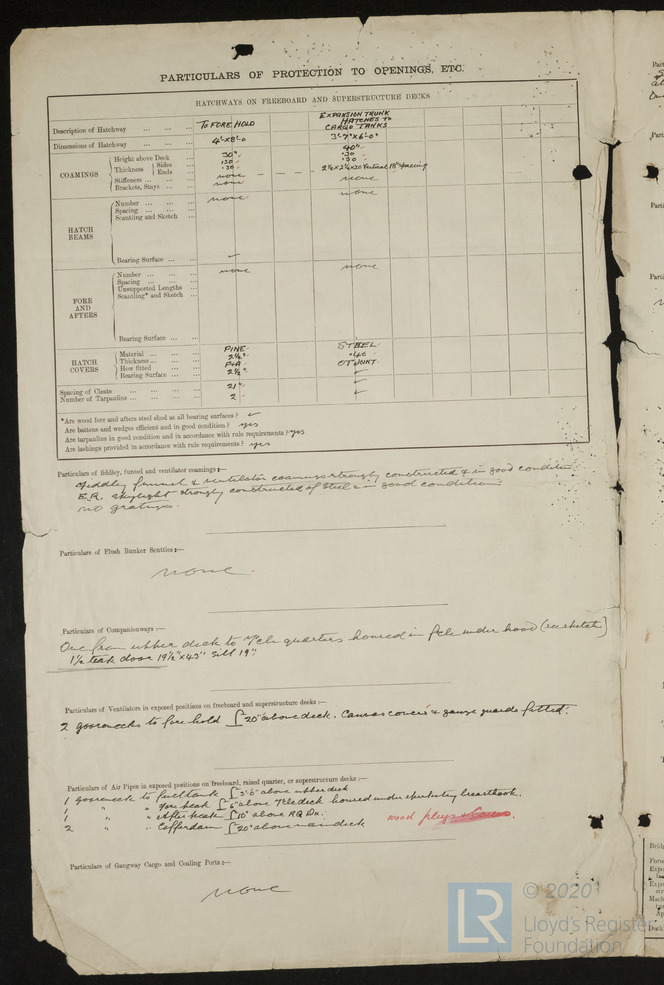 PARTICULARS OF PROTECTION TO OPENINGS, ETC.
HATCHWAYS ON FREEBOARD AND SUPERSTRUCTURE DECKS
Description of Hatchway ... ... ... TO FORE HOLD EXPANSION TRUNK HATCHES TO CARGO TANKS
Dimensions of Hatchway ... ... ... 4'-0 x 8'-0 3'-7" x 6'-0"
COAMINGS
Height above Deck ... 30" 40"
Thickness Sides ... .30 .30
Ends ... .30 .30
Stiffeners ... ... ... none 2½ x 2½ x .20 Vertical 18" spacing
Brackets, Stays ... ... none none
HATCH BEAMS
Number ... ... ... none none
Spacing ... ... ...
Scantling and Sketch
Bearing Surface ... ... ✓
FORE AND AFTERS
Number ... ... ... none none
Spacing ... ... ...
Unsupported Lengths ...
Scantling* and Sketch ...
Bearing Surface ... ...
HATCH COVERS
Material ... ... ... PINE STEEL
Thickness ... ... ... 2½" .40
How fitted ... ... F & A OT JOINT
Bearing Surface ... ... 2½" ✓
Spacing of Cleats ... ... ... ... 21" ✓
Number of Tarpaulins ... ... ... 2 ✓
*Are wood fore and afters steel shod at all bearing surfaces? ✓
Are battens and wedges efficient and in good condition? yes
Are tarpaulins in good condition and in accordance with rule requirements? yes
Are lashings provided in accordance with rule requirements? yes
Particulars of fiddley, funnel and ventilator coamings:—
Fiddley funnel & ventilator coamings strongly constructed & in good condition
E.R. skylight strongly constructed of steel & in good condition
no gratings
Particulars of Flush Bunker Scuttles:—
none.
Particulars of Companionways:—
One from upper deck to Fcle quarters housed in fcle under hood (see sketch)
1½ teak door 19½" x 43" sill 19"
Particulars of Ventilators in exposed positions on freeboard and superstructure decks:—
2 goosenecks to fore hold 20" above deck. Canvas covers & gauze guards fitted.
Particulars of Air Pipes in exposed positions on freeboard, raised quarter, or superstructure decks:—
1 gooseneck to fuel tank 3'-6" above upper deck
1 " " Fore peak 6" above Fcle deck housed under breasthook.
1 " " After peak 10" above RQ Dk.
2 " " Cofferdam 20" above main deck wood plugs
Particulars of Gangway Cargo and Coaling Ports:—
none
LR © 2020
Lloyd's Register
Foundation